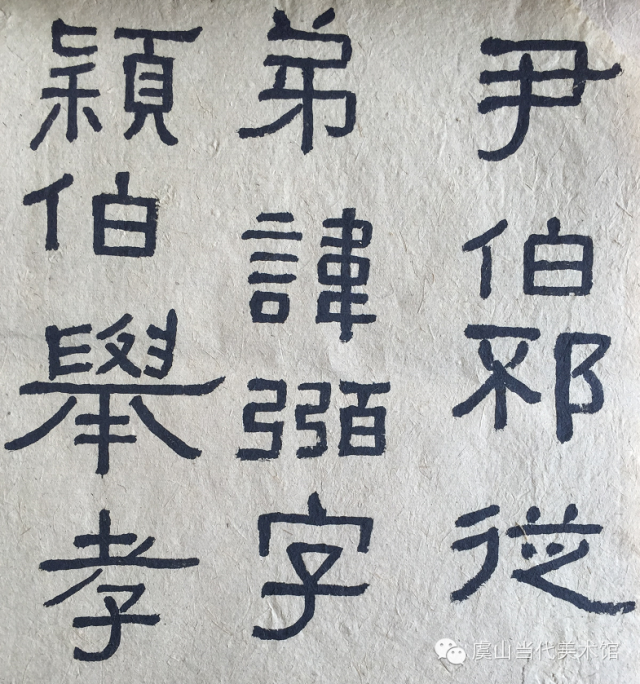 尹伯邳從
弟諱弻字
穎伯舉孝
虞山当代美术馆